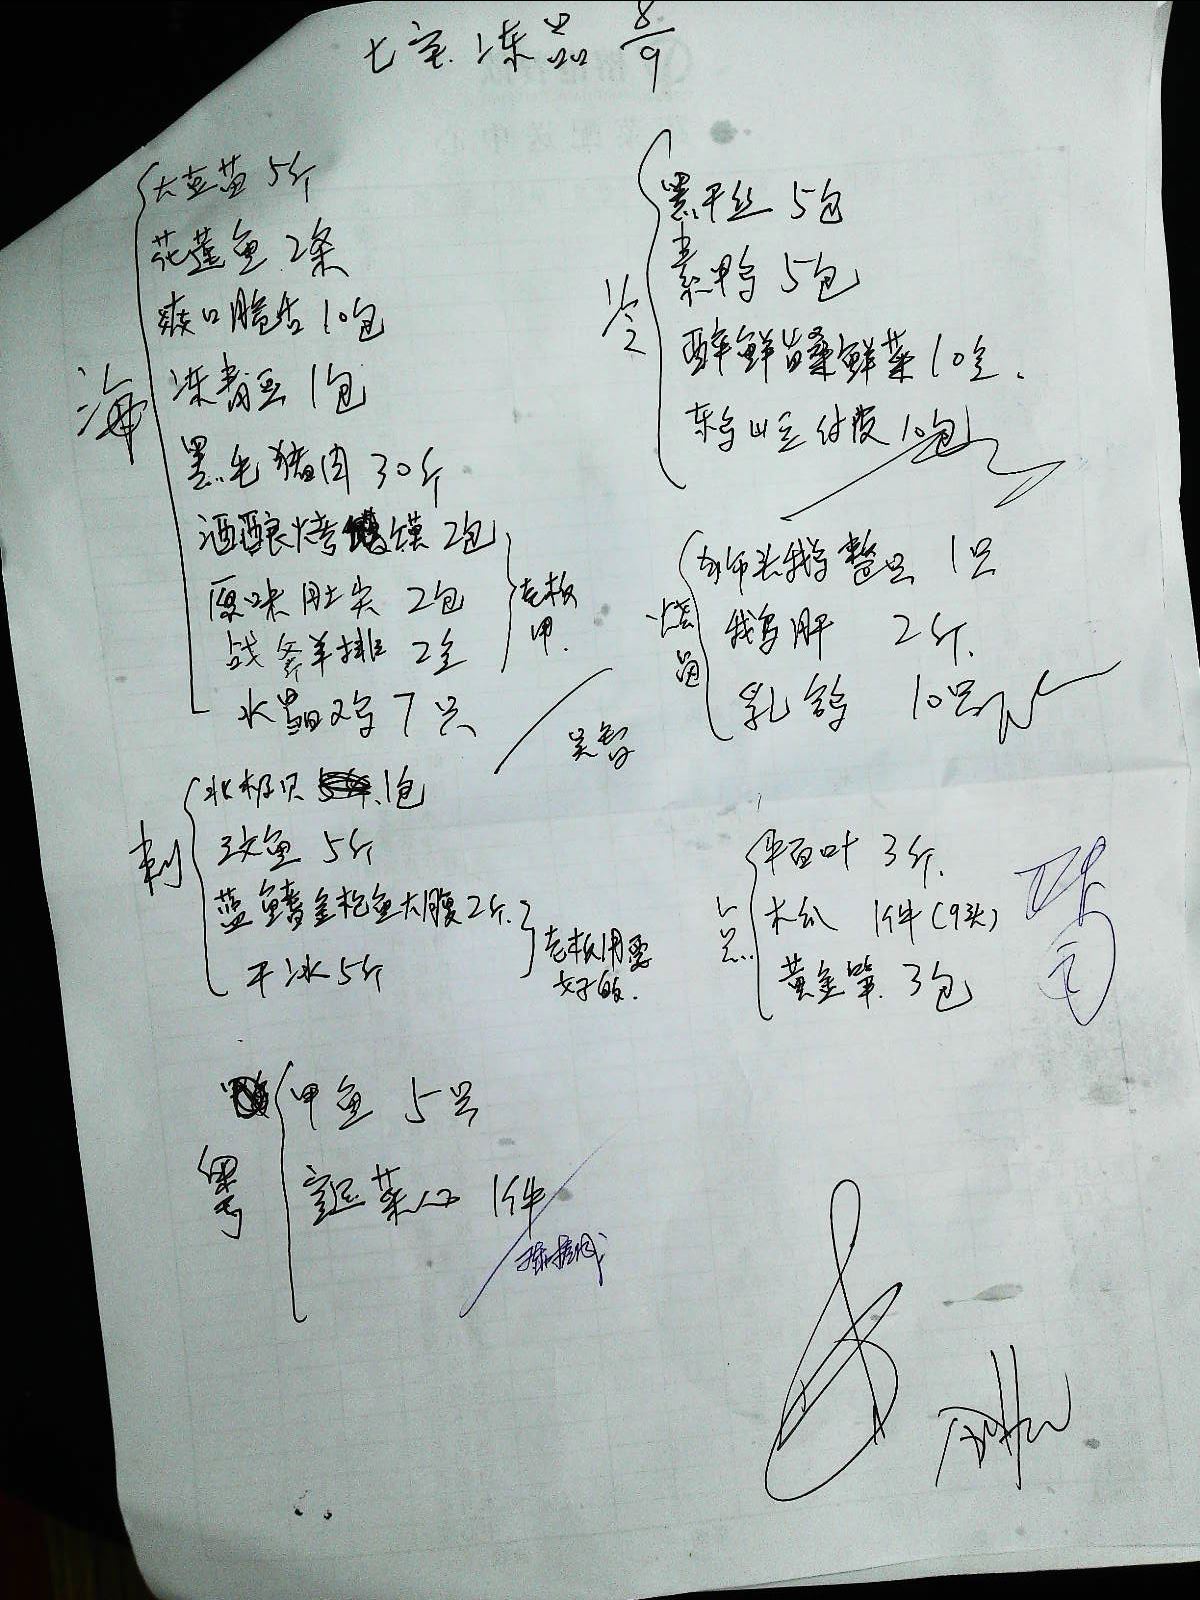 七宝冻品 8/9
海
大豆苗 5斤
花莲鱼 2条
爽口脆舌 10包
冻青豆 1包
黑毛猪肉 30斤
酒酿烤馍 2包
原味肚尖 2包
战斧羊排 2盒
老板用
水晶鸡 7只
吴智
刺
北极贝 1包
三文鱼 5斤
蓝鳍金枪鱼大腹 2斤
干冰 5斤
老板用要好的
粤
甲鱼 5只
菜心 1件
冷
黑干丝 5包
素鸭 5包
醉鲜 鲜菜 10盒
东乌山豆付皮 10包
烧卤
狮头鹅整只 1只
鹅肝 2斤
乳鸽 10只
点
平百叶 3斤
木瓜 1件(9头)
黄金笋 3包